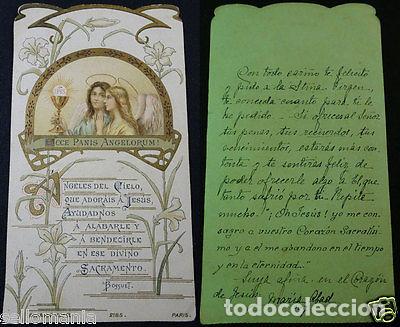 ECCE PANIS ANGELORUM!
ANGELES DEL CIELO,
QUE ADORAIS Á JESÚS,
AYUDADNOS
Á ALABARLE Y
Á BENDECIRLE
EN ESE DIVINO
SACRAMENTO.
BOSSUET.
2185. PARIS.
Con todo cariño te felicito
y pido a la Stma. Virgen
te conceda cuanto para ti le
he pedido. Si ofreces al Señor
tus penas, tus recuerdos, tus
vencimientos, estarás más con-
tenta y te sentirás feliz de
poder ofrecerle algo a El, que
tanto sufrió por tu Pepita
mucho! ¡Oh Jesus! yo me con-
sagro a vuestro Corazón Sacratísi-
mo y a el me abandono en el tiempo
y en la eternidad.
Suya afma. en el Corazón
de Jesús María Abad
sellomania
todocoleccion